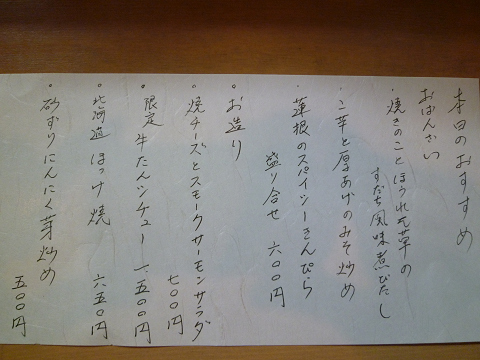 本日のおすすめ
おばんざい
・焼きのことほうれん草の
すだち風味煮びたし
・こ芋と厚あげのみそ炒め
・蓮根のスパイシーきんぴら
盛り合せ 六〇〇円
・お造り
・焼チーズとスモークサーモンサラダ
七〇〇円
・限定 牛たんシチュー 一、五〇〇円
・北海道ほっけ焼 六五〇円
・砂ずりにんにく芽炒め
五〇〇円